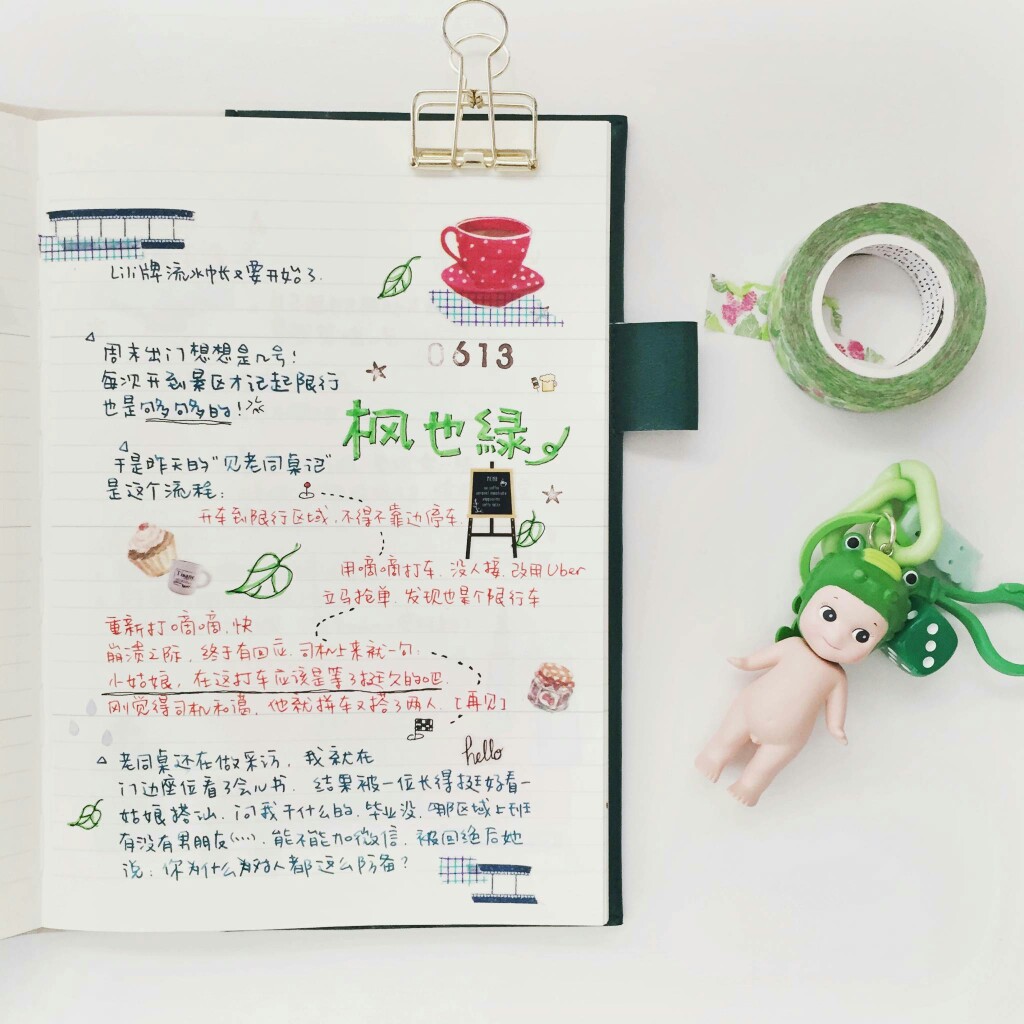 Lili牌流水帐又要开始了.
0613
周末出门想想是几号!
每次开到景区才记起限行
也是够够的!
枫也緑
于是昨天的"见老同桌记"
是这个流程:
开车到限行区域,不得不靠边停车.
用嘀嘀打车,没人接,改用Uber
立马抢单,发现也是个限行车
重新打嘀嘀,快
崩溃之际,终于有回应,司机上来就一句:
小姑娘,在这打车应该是等了挺久的吧.
刚觉得司机和蔼,他就拼车又搭了两人.[再见]
hello
老同桌还在做采访,我就在
门边座位看了会儿书.结果被一位长得挺好看一
姑娘搭讪,问我干什么的,毕业没,哪区域上班
有没有男朋友(....),能不能加微信,被回绝后她
说:你为什么对人都这么防备?